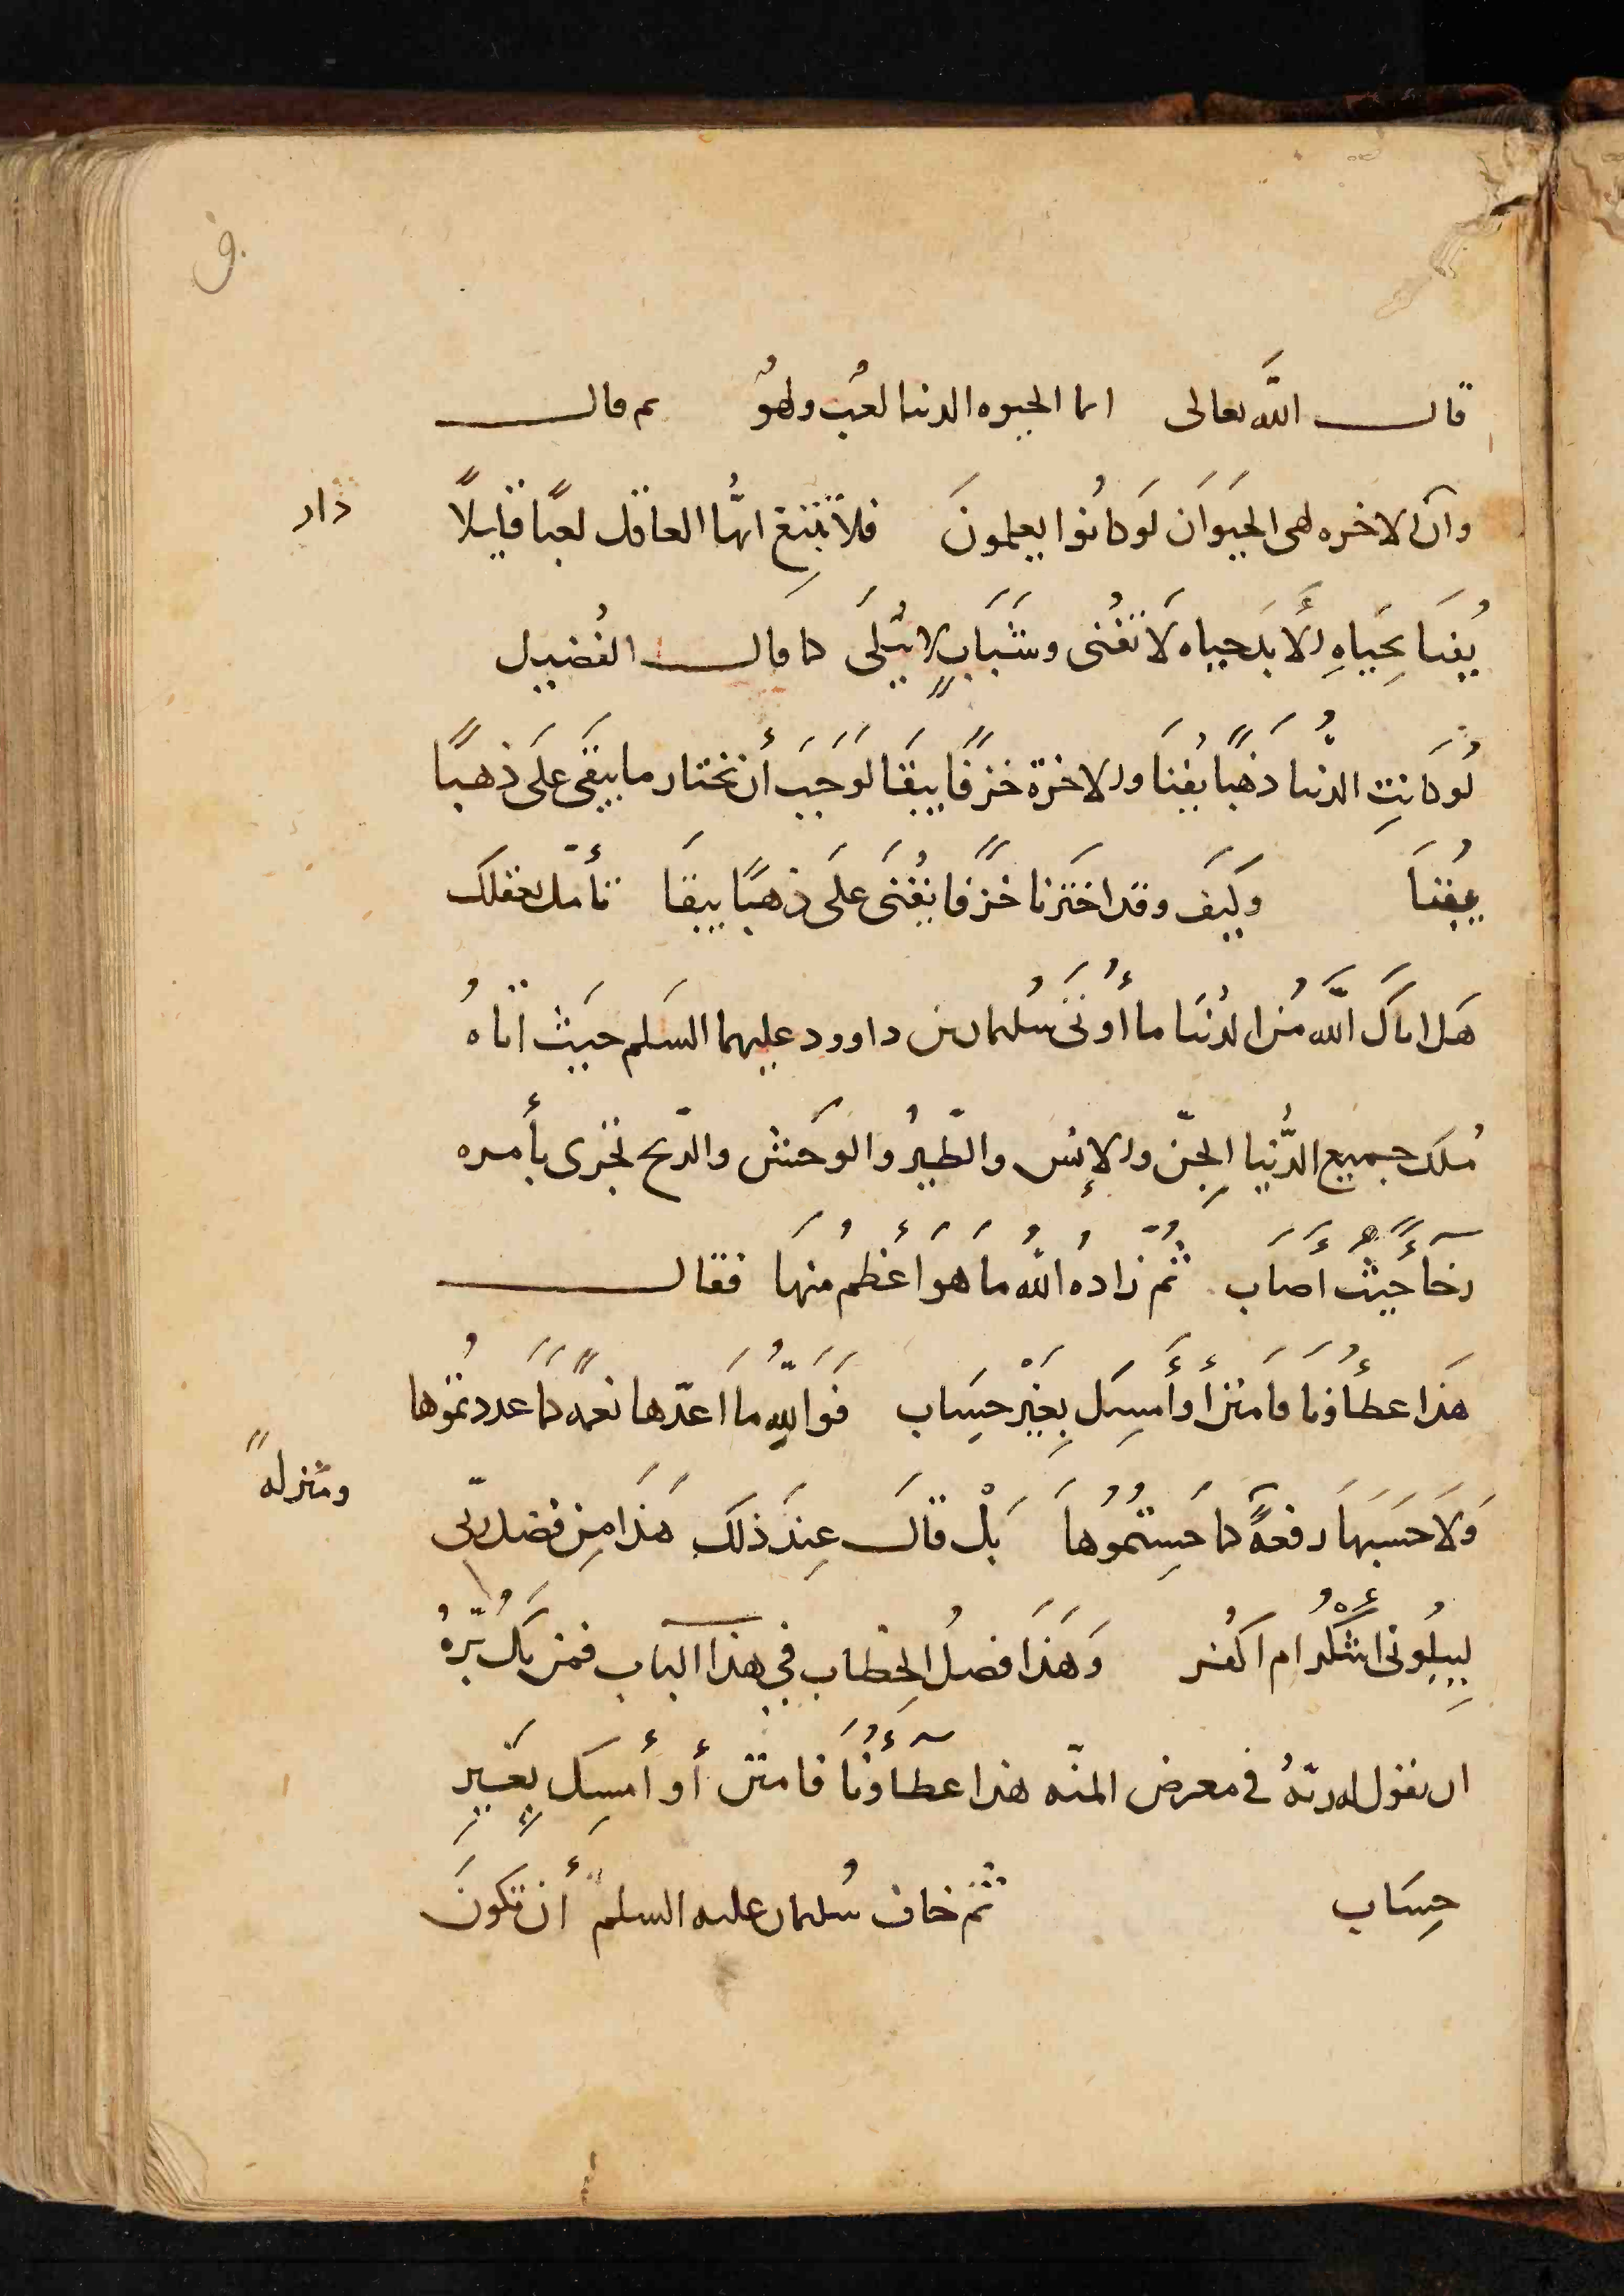 قال الله تعالى انما الحيوه الدنيا لعب ولهو ثم قال
وان الاخره لهى الحيوان لو كانوا يعلمون فلا تبتغ ايها العاقل لعبا قليلا
دار
يفنا بحياه الأبد حياه لا تفنى وشباب لا يبلى كما قال الفضيل
لو كانت الدنيا ذهبا يفنا والاخرة خزفا يبقا لوجب أن نختار ما يبقى على ذهبا
يفنا وكيف وقد اخترنا خزفا يفنى على ذهبا يبقا تأمل بعقلك
هل اتاك الله من الدنيا ما أوتى سليمان بن داوود عليهما السلم حيث اتاه
ملك جميع الدنيا الجن والإنس والطير والوحش والريح تجرى بأمره
رخاء حيث أصاب ثم زاده الله ما هو أعظم منها فقال
هذا عطاؤنا فامنن أو أمسك بغير حساب فوالله ما اعدها نعمه كما عددتموها
ومنزله
ولا حسبها رفعة كما حسبتموها بل قال عند ذلك هذا من فضل ربى
ليبلونى اشكر ام اكفر وهذا فصل الخطاب في هذا الباب فمن
ان يقول له ربه في معرض المنه هذا عطآؤنا فامنن أو أمسك بغير
حساب ثم خاف سليمان عليه السلم أن تكون